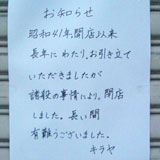 お知らせ
昭和41年開店以来
長年にわたり、お引き立て
いただきましたが
諸般の事情により、閉店
しました。長い間
有難うございました。
キラヤ